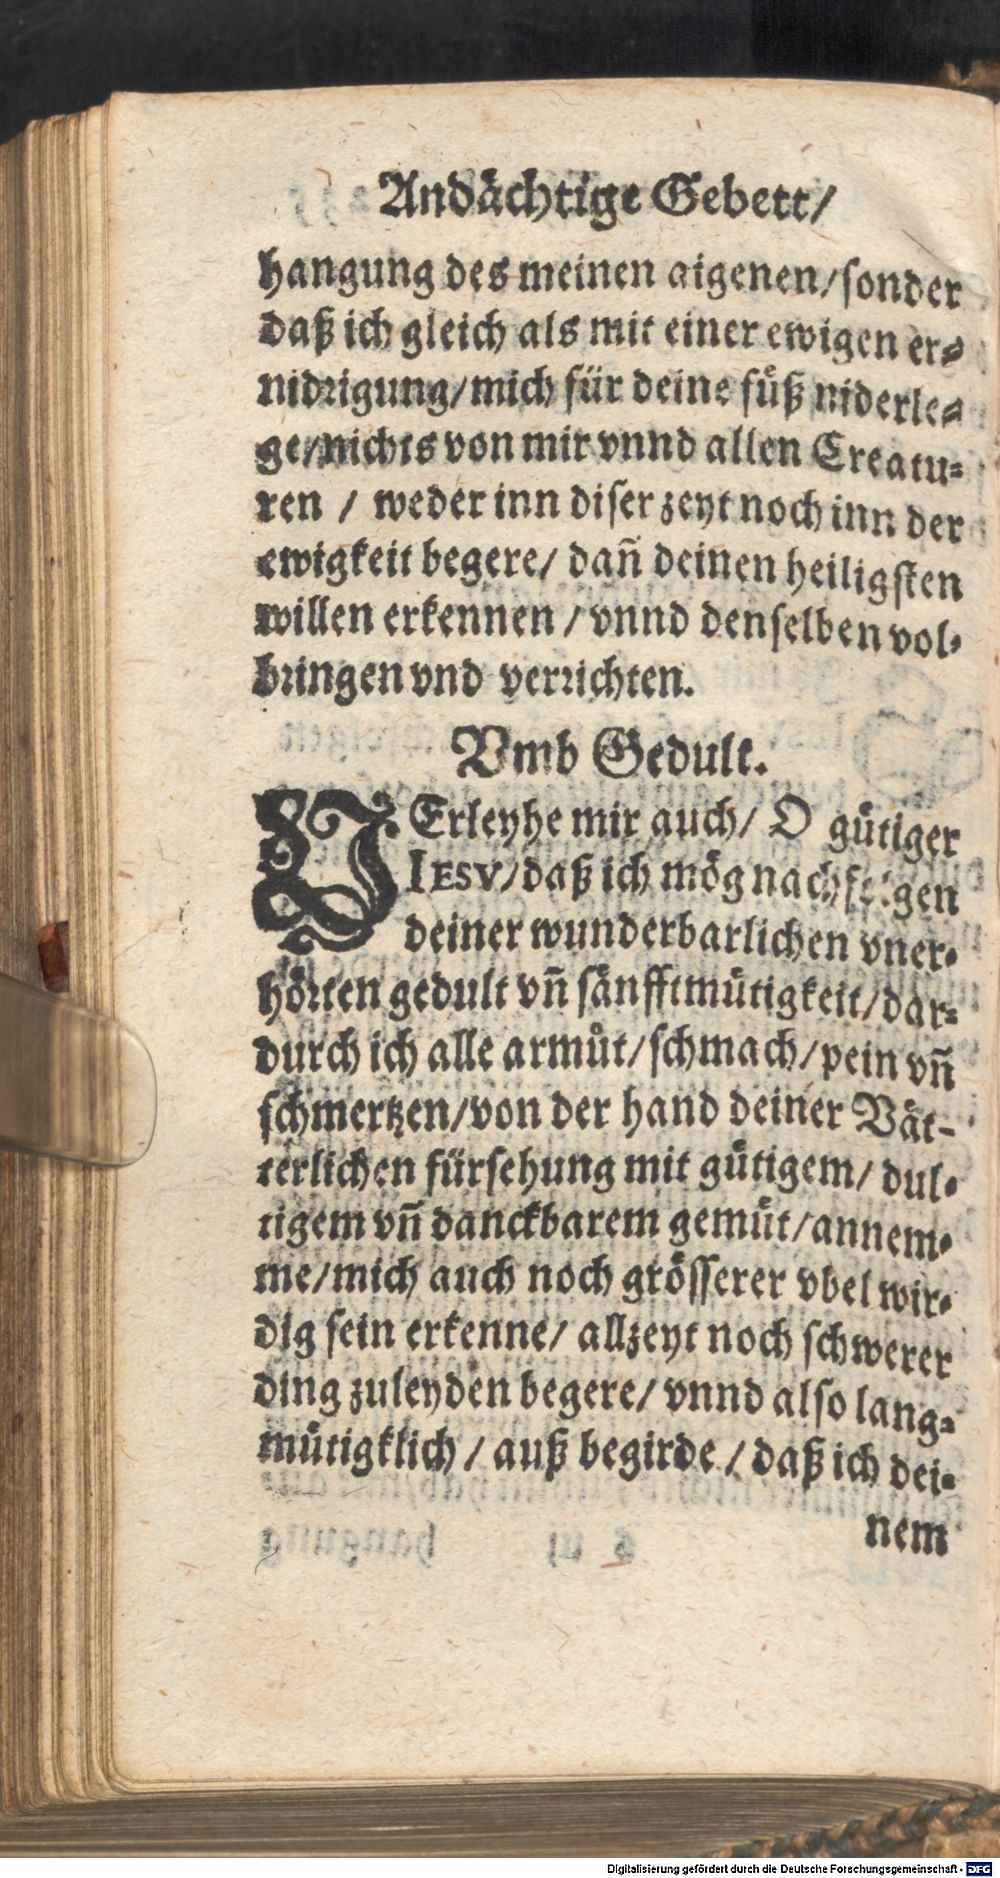 Andächtige Gebett/
hangung des meinen aigenen/sonder
daß ich gleich als mit einer ewigen er⸗
nidrigung/mich für deine fuͤß niderle⸗
ge/nichts von mir vnnd allen Creatu⸗
ren / weder inn diser zeyt noch inn der
ewigkeit begere/ dañ deinen heiligsten
willen erkennen / vnnd denselben vol⸗
bringen vnd verrichten.
Vmb Gedult.
VErleyhe mir auch/ O guͤtiger
IESV/daß ich moͤg nachfolgen
deiner wunderbarlichen vner⸗
hoͤrten gedult vñ saͤnfftmuͤtigkeit/dar⸗
durch ich alle armuͦt/schmach/pein vñ
schmertzen/von der hand deiner Vaͤt⸗
terlichen fürsehung mit guͤtigem/ dul⸗
tigem vñ danckbarem gemuͤt/annem⸗
me/mich auch noch groͤsserer vbel wir⸗
dig sein erkenne/ allzeyt noch schwerer
ding zuleyden begere/ vnnd also lang⸗
muͤtigklich / auß begirde / daß ich dei⸗
nem
Digitalisierung gefördert durch die Deutsche Forschungsgemeinschaft - DFG